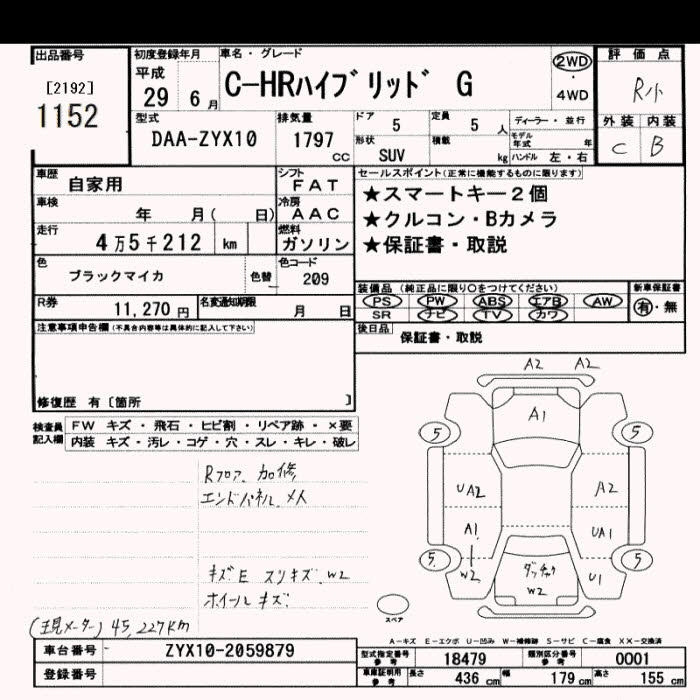 出品番号 初度登録年月 車名・グレード 評価点
[2192] 平成 C-HRハイブリッド G 2WD・4WD R小
1152 29 6月
型式 排気量 ドア 定員 ディーラー・並行 外装 内装
DAA-ZYX10 1797cc 5 5人 モデル年式 年 C B
形状 積載
SUV kg ハンドル 左・右
車歴 自家用 シフト FAT セールスポイント(正常に機能するものに限ります)
車検 年 月( 日) 冷房 AAC ★スマートキー2個
★クルコン・Bカメラ
走行 4万5千212 km 燃料 ガソリン ★保証書・取説
色 ブラックマイカ 色替 色コード 209
装備品(純正品に限り○をつけてください) 新車保証書
R券 11,270円 名変通知期限 月 日 PS PW ABS エアB AW 有・無
SR ナビ TV カワ
注意事項申告欄(不具合内容等は具体的に記入して下さい) 後日品 保証書・取説
修復歴 有〔箇所 〕
検査員記入欄 FW キズ・飛石・ヒビ割・リペア跡・×要
内装 キズ・汚レ・コゲ・穴・スレ・キレ・破レ
A2 A2
A1
5 5
Rフロア 加修
エンドパネル メ人
UA2 A2
A1 UA1
5 5
W2 ダッチャク W2 U1
キズE スリキズ W2
ホイールキズ
スペア
(現メーター) 45,227km
A-キズ E-エクボ U-凹み W-補修跡 S-サビ C-腐食 XX-交換済
車台番号 ZYX10-2059879 型式指定番号 参考 18479 類別区分番号 参考 0001
登録番号 車庫証明用 参考 長さ 436cm 幅 179cm 高さ 155cm